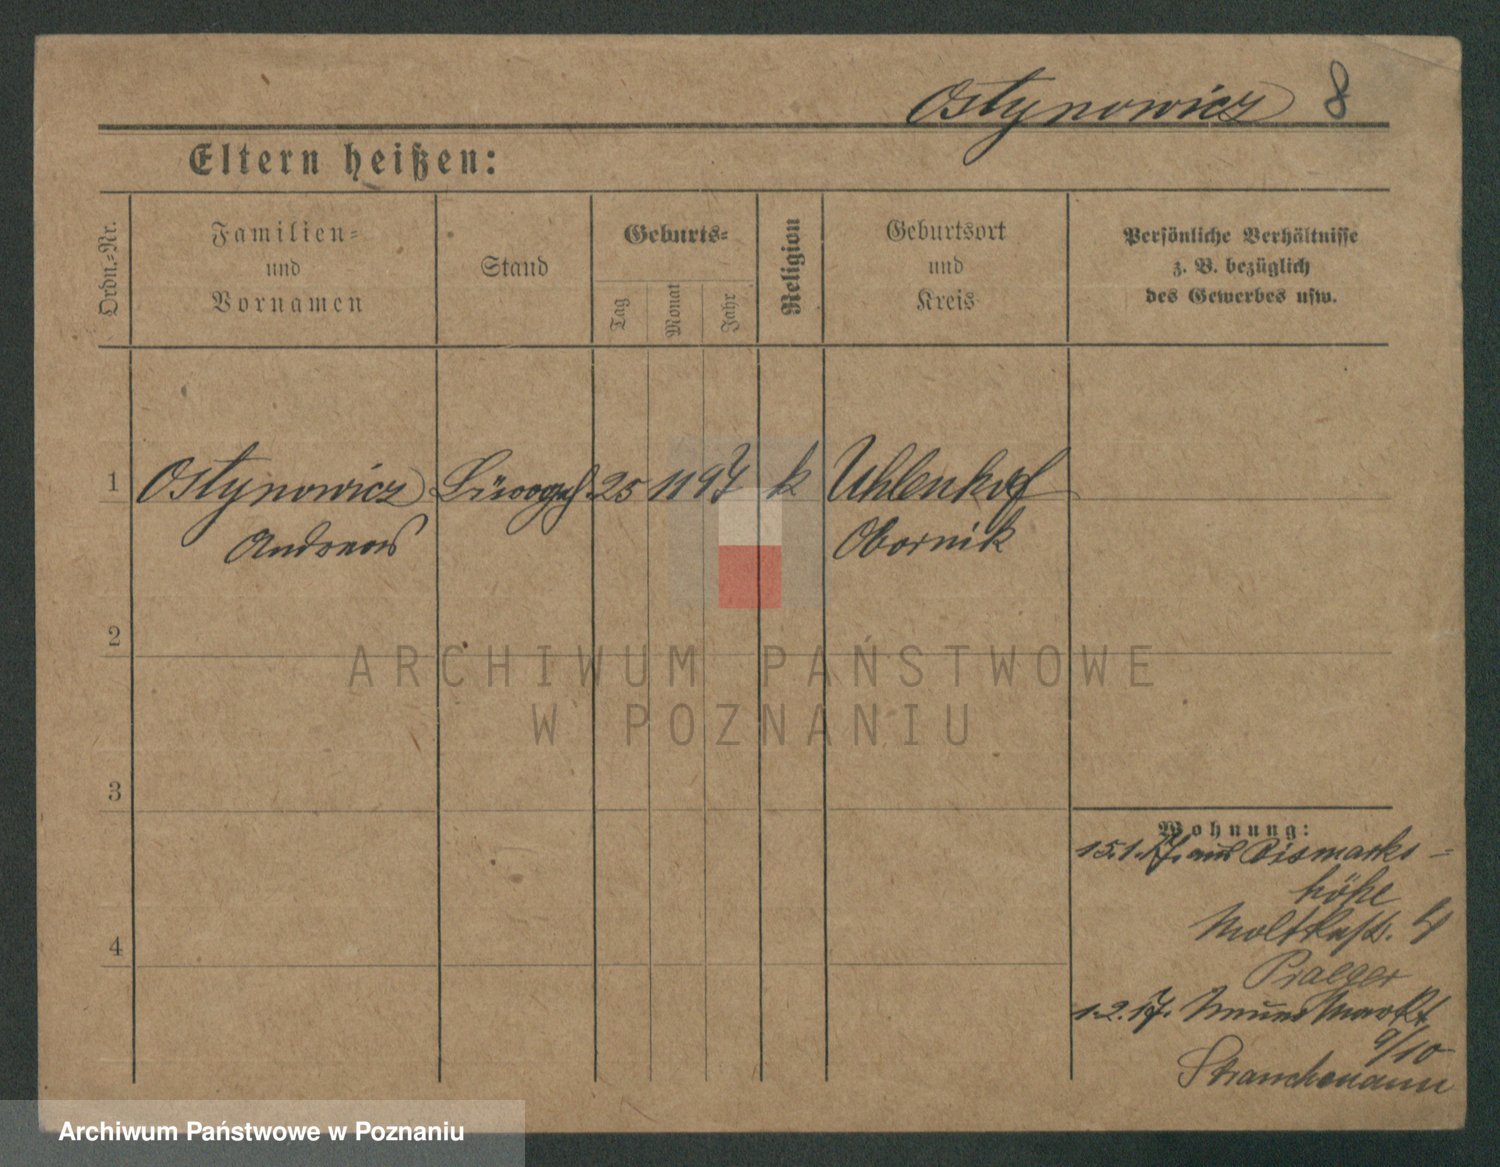 Ostynowicz 8
Eltern heißen:
Ordn.-Nr.
Familien-
und
Vornamen
Stand
Geburts-
Tag
Monat
Jahr
Religion
Geburtsort
und
Kreis
Persönliche Verhältnisse
z. B. bezüglich
des Gewerbes usw.
1 Ostynowicz Bürogeh. 25 11 97 k Uhlenhof
Andreas Obornik
2
3
4
Wohnung:
15.1.17. aus Bismarks-
höhe
Moltkestr. 4
Praeger
1.2.17. Neuer Markt
9/10
ARCHIWUM PAŃSTWOWE
W POZNANIU
Archiwum Państwowe w Poznaniu